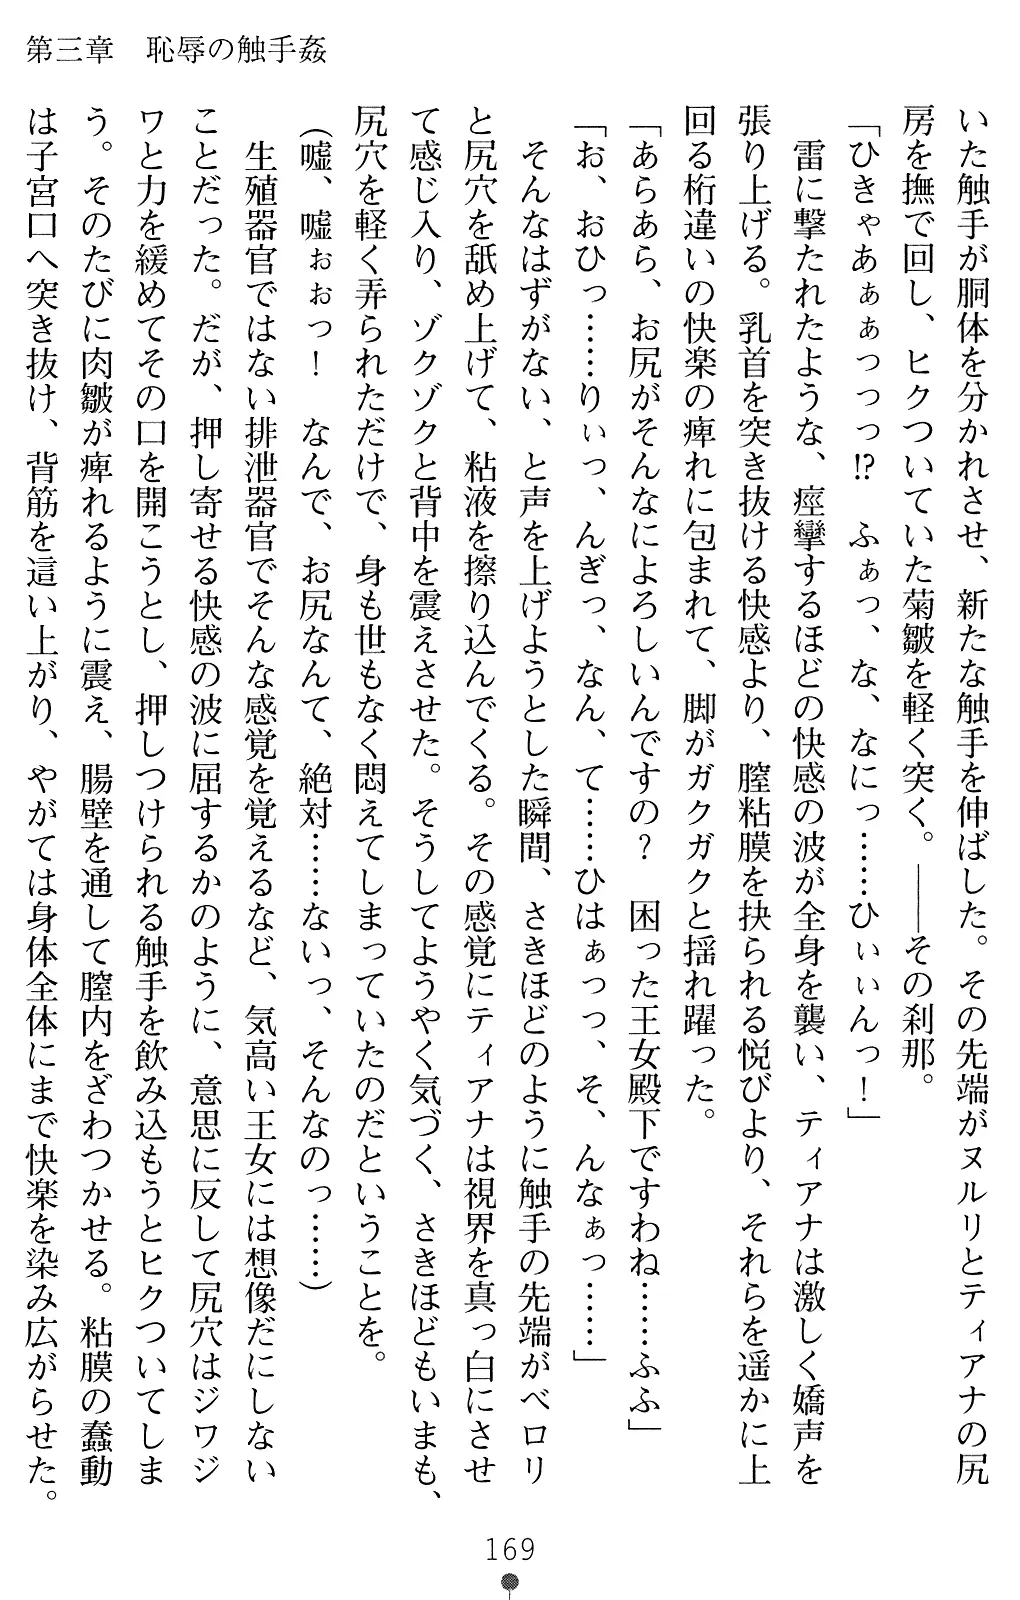 第三章　恥辱の触手姦
いた触手が胴体を分かれさせ、新たな触手を伸ばした。その先端がヌルリとティアナの尻
房を撫で回し、ヒクついていた菊皺を軽く突く。――その刹那。
「ひきゃあぁぁっっっ!?　ふぁっ、な、なにっ……ひぃぃんっ！」
　雷に撃たれたような、痙攣するほどの快感の波が全身を襲い、ティアナは激しく嬌声を
張り上げる。乳首を突き抜ける快感より、膣粘膜を抉られる悦びより、それらを遥かに上
回る桁違いの快楽の痺れに包まれて、脚がガクガクと揺れ躍った。
「あらあら、お尻がそんなによろしいんですの？　困った王女殿下ですわね……ふふ」
「お、おひっ……りぃっ、んぎっ、なん、て……ひはぁっっ、そ、んなぁっ……」
　そんなはずがない、と声を上げようとした瞬間、さきほどのように触手の先端がベロリ
と尻穴を舐め上げて、粘液を擦り込んでくる。その感覚にティアナは視界を真っ白にさせ
て感じ入り、ゾクゾクと背中を震えさせた。そうしてようやく気づく、さきほどもいまも、
尻穴を軽く弄られただけで、身も世もなく悶えてしまっていたのだということを。
（嘘、嘘ぉぉっ！　なんで、お尻なんて、絶対……ないっ、そんなのっ……）
　生殖器官ではない排泄器官でそんな感覚を覚えるなど、気高い王女には想像だにしない
ことだった。だが、押し寄せる快感の波に屈するかのように、意思に反して尻穴はジワジ
ワと力を緩めてその口を開こうとし、押しつけられる触手を飲み込もうとヒクついてしま
う。そのたびに肉皺が痺れるように震え、腸壁を通して膣内をざわつかせる。粘膜の蠢動
は子宮口へ突き抜け、背筋を這い上がり、やがては身体全体にまで快楽を染み広がらせた。
169